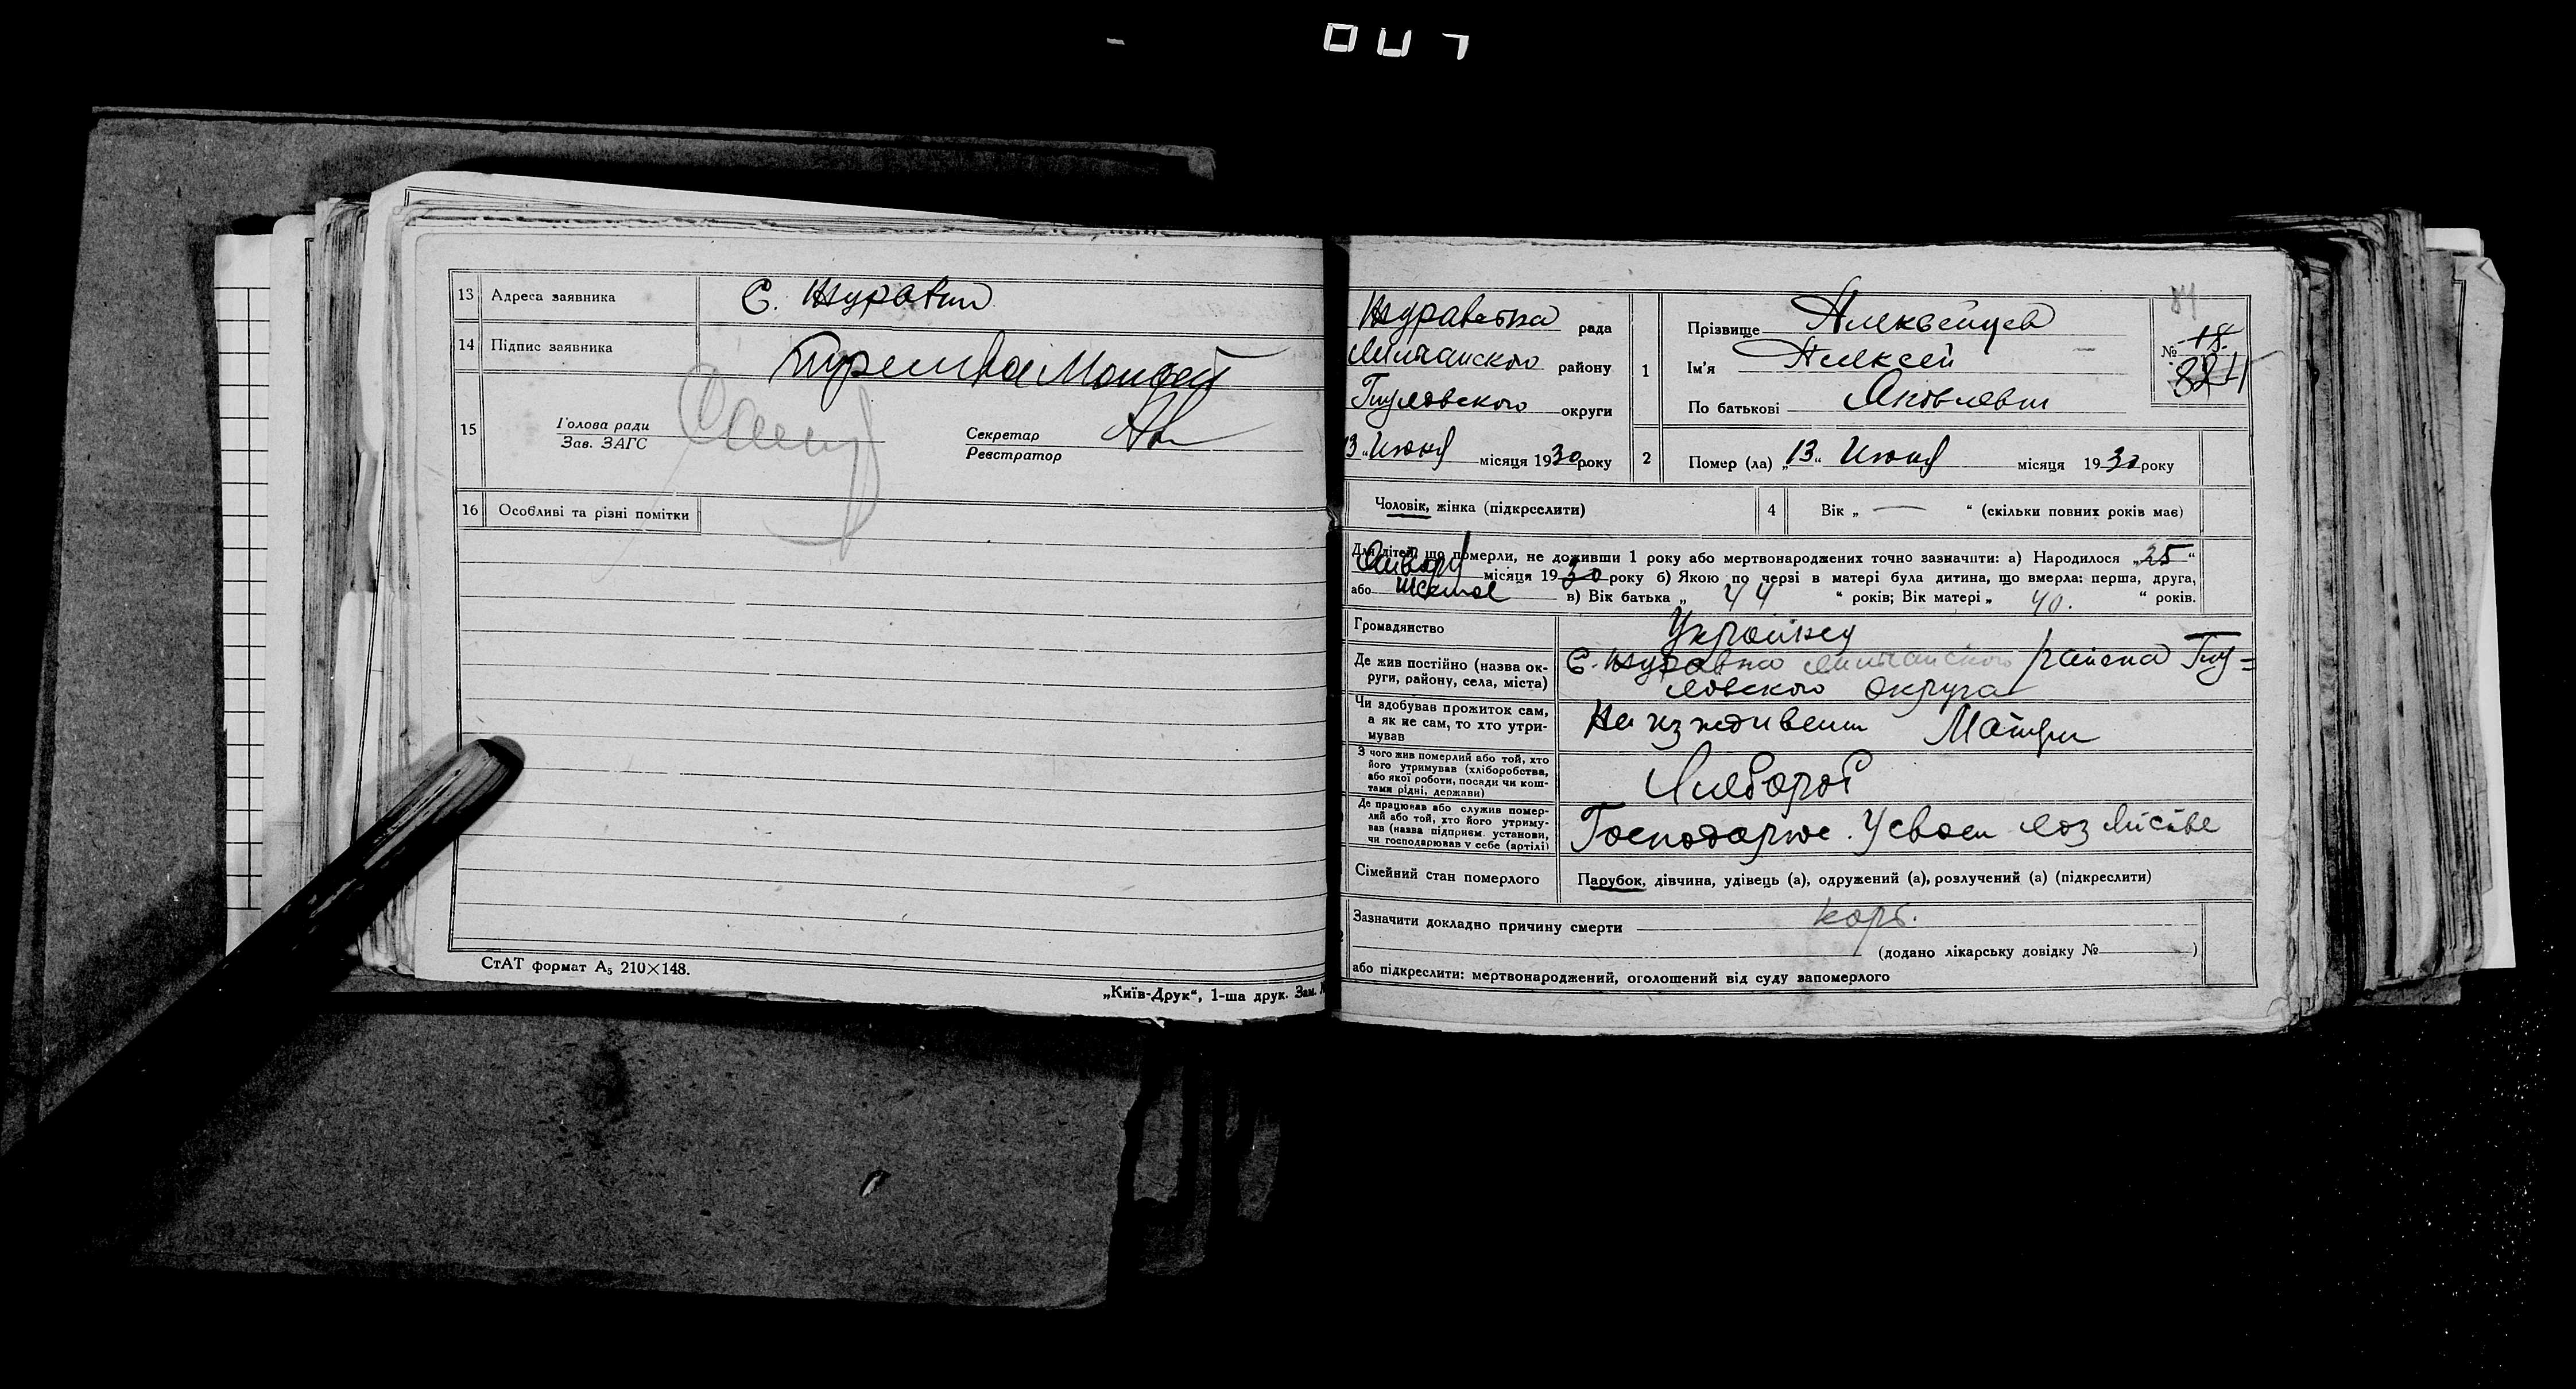 13 Адреса заявника С. Журавки
14 Підпис заявника
15 Голова ради
Зав. ЗАГС
Секретар
Реєстратор
16 Особливі та різні помітки
СтАТ формат А₅ 210×148.
„Київ-Друк“, 1-ша друк. Зам.
рада
району
округи
13 „Июня місяця 1930 року
84
№ 18.
1 Прізвище Алексейцев
Ім’я Алексей
По батькові Яковлевич
2 Помер (ла) „13“ Июня місяця 1930 року
Чоловік, жінка (підкреслити)
4 Вік „ — “ (скільки повних років має)
Для дітей, що померли, не доживши 1 року або мертвонароджених точно зазначити: а) Народилося „25“
Января місяця 1930 року б) Якою по черзі в матері була дитина, що вмерла: перша, друга,
або шестая в) Вік батька „ 44 “ років; Вік матері „ 40. “ років.
Громадянство
Де жив постійно (назва ок-
руги, району, села, міста)
С. Журавка района
округа
Чи здобував прожиток сам,
а як не сам, то хто утри-
мував
На иждивении Матери
З чого жив померлий або той, хто
його утримував (хліборобства,
або якої роботи, посади чи кош-
тами рідні, держави)
Хлебороб
Де працював або служив помер-
лий або той, хто його утриму-
вав (назва підприєм. установи,
чи господарював у себе (артілі)
Господарює. У своем
Сімейний стан померлого Парубок, дівчина, удівець (а), одружений (а), розлучений (а) (підкреслити)
Зазначити докладно причину смерти корь.
(додано лікарську довідку № )
або підкреслити: мертвонароджений, оголошений від суду запомерлого